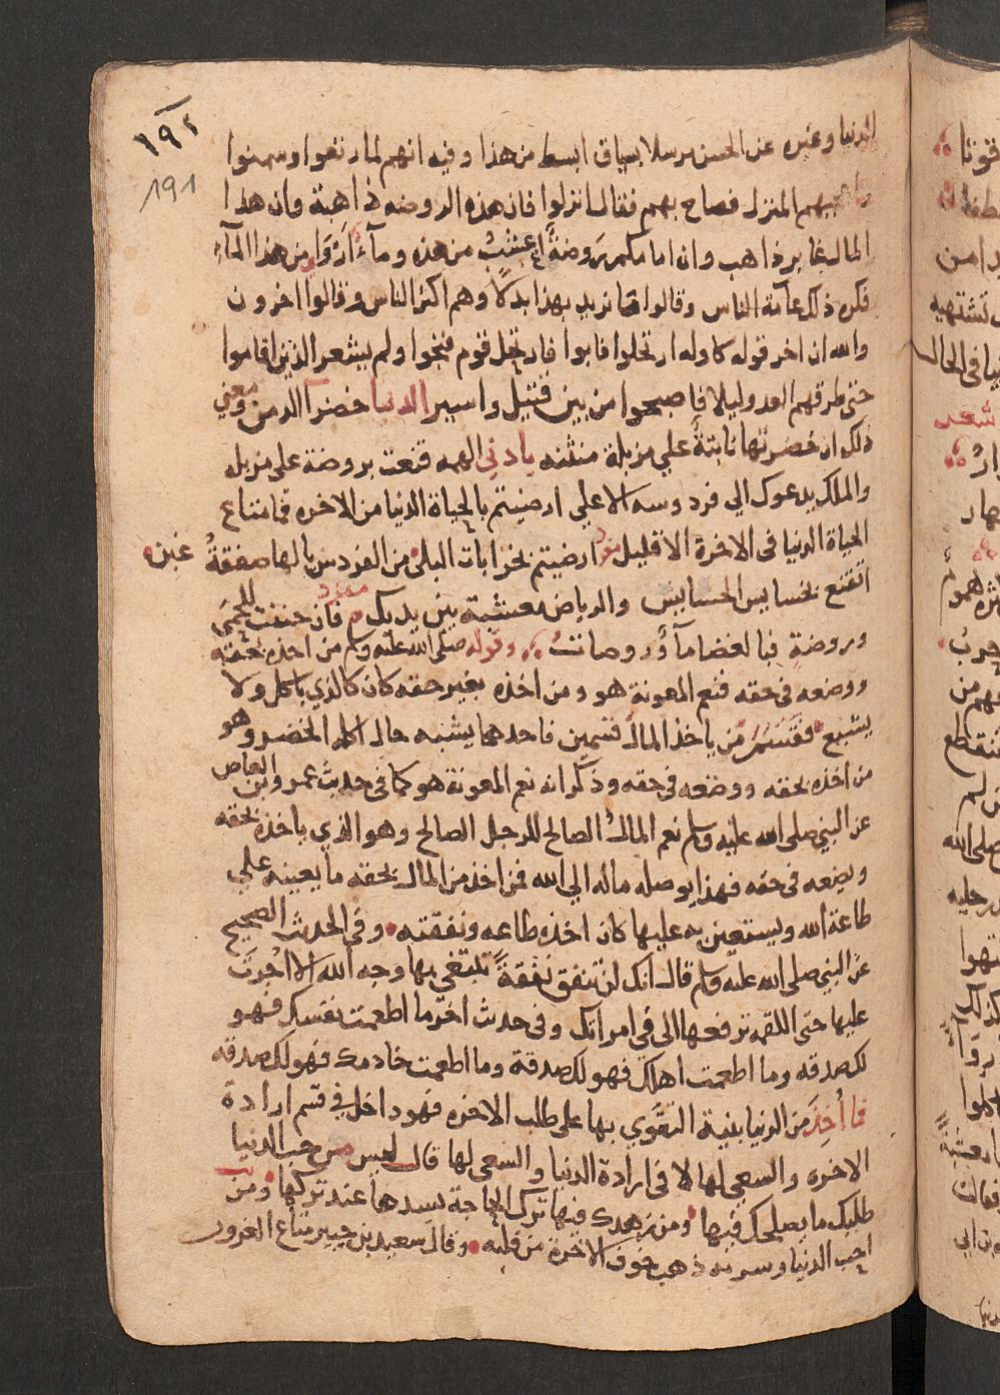 ١٩٢
191
الدنيا وغيره عن الحسن مرسلا بسياق ابسط من هذا وفيه انهم لما رتعوا وسمنوا
المنزل فصاح بهم فقال انزلوا فان هذه الروضه ذاهبة وان هذا
المال غابر ذاهب وان امامكم روضةً اعشبُ من هذه ومآءً اَرْوَا من هذا المآء
فكره ذلك عآمة الناس وقالوا ما نريد بهذا بدلاً وهم اكثر الناس وقالوا اخرون
والله ان اخر قوله كاوله ارتحلوا فابوا فارتحل قوم فنجوا ولم يشعر الذين اقاموا
حتى طرقهم العدو ليلا فاصبحوا من بين قتيل واسير الدنيا خضرآ الدمن ومعني
ذلك ان خضرتها نابتةٌ علي مزبلة منتنه يادني الهمه قنعت بروضة على مزبله
والملك يدعوك الي فردوسه الاعلي ارضيتم بالحياة الدنيا من الاخره فما متاع
الحياة الدنيا فى الاخرة الا قليل ارضيتم بخرابات البلى من الفردس يا لها صفقةُ غبن
اتقنع بخسايس الحسايس والرياض معشبة بين يديك فان حننت للحمَى
وروضةٍ فبالغضا مآ وُروضاتُ وقوله صلى الله عليه وسلم من اخذه بحقه
ووضعه فى حقه فنعم المعونة هو ومن اخذه بغير حقه كان كالذي ياكل ولا
يشبع فقَسَمَ من ياخذ المال قسمين فاحدهما يشبه حال اكله الخضر وهو
من اخذه بحقه ووضعه فى حقه وذكر انه نعم المعونة هو كما فى حديث عمرو بن العاص
عن النبي صلى الله عليه وسلم نعم المالُ الصالح للرجل الصالح وهو الذي ياخذه بحقه
ويضعه فى حقه فهذا يوصله ماله الي الله فمن اخذ من المال بحقه ما يعينه علي
طاعة الله ويستعين به عليها كان اخذه طاعه ونفقته وفى الحديث الصحيح
عن النبي صلى الله عليه وسلم قال انك لن تنفق نفقةً تبتغي بها وجه الله الا اُجرتَ
عليها حتى اللقمه ترفعها الى في امراتك وفى حديث اخر ما اطعمت نفسك فهو
لك صدقه وما اطعمت اهلك فهو لك صدقة وما اطعمت خادمك فهو لك صدقه
فما اُخِذَ من الدنيا بنية التقَوي بها على طلب الاخره فهو داخل في قسم ارادة
الاخره والسعي لها لا فى ارادة الدنيا والسعى لها قال الحسن ليس من حب الدنيا
طلبك ما يصلحك فيها ومن زهدك فيها ترك الحاجة يسدها عند تركها ومن
احب الدنيا وسرته ذهب خوف الاخرة من قلبه وقال سعيد بن جبير متاع الغرور